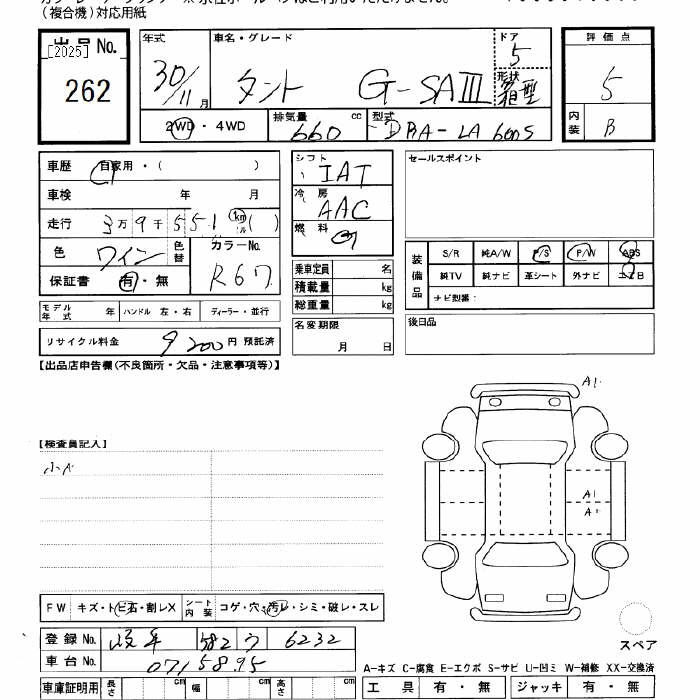 (複合機)対応用紙
出品No.
[2025]
262
年式
30/11月
車名・グレード
タント G-SAⅢ
ドア
5
形状
箱型
評価点
5
内装
B
2WD・4WD
排気量 cc
660
型式
DBA-LA600S
車歴 自家用・( )
車検 年 月
走行 3万9千551 km ( )
色 ワイン
色替
カラーNo.
R67
保証書 有・無
シフト
IAT
冷房
AAC
燃料
乗車定員 名
積載量 kg
総重量 kg
名変期限
月 日
セールスポイント
装備品
S/R 純A/W P/S P/W ABS
純TV 純ナビ 革シート 外ナビ エアB
ナビ型番:
後日品
モデル年式 年 ハンドル 左・右 ディーラー・並行
リサイクル料金 9200円 預託済
【出品店申告欄(不良箇所・欠品・注意事項等)】
【検査員記入】
小キズ
A1
A1
A1
FW キズ・トビ石・割レX
シート内装 コゲ・穴・汚レ・シミ・破レ・スレ
登録No. 岐阜 582 ワ 6232
車台No. 0715895
車庫証明用 長さ cm 幅 cm 高さ cm
スペア
A-キズ C-腐食 E-エクボ S-サビ U-凹ミ W-補修 XX-交換済
工具 有・無 ジャッキ 有・無